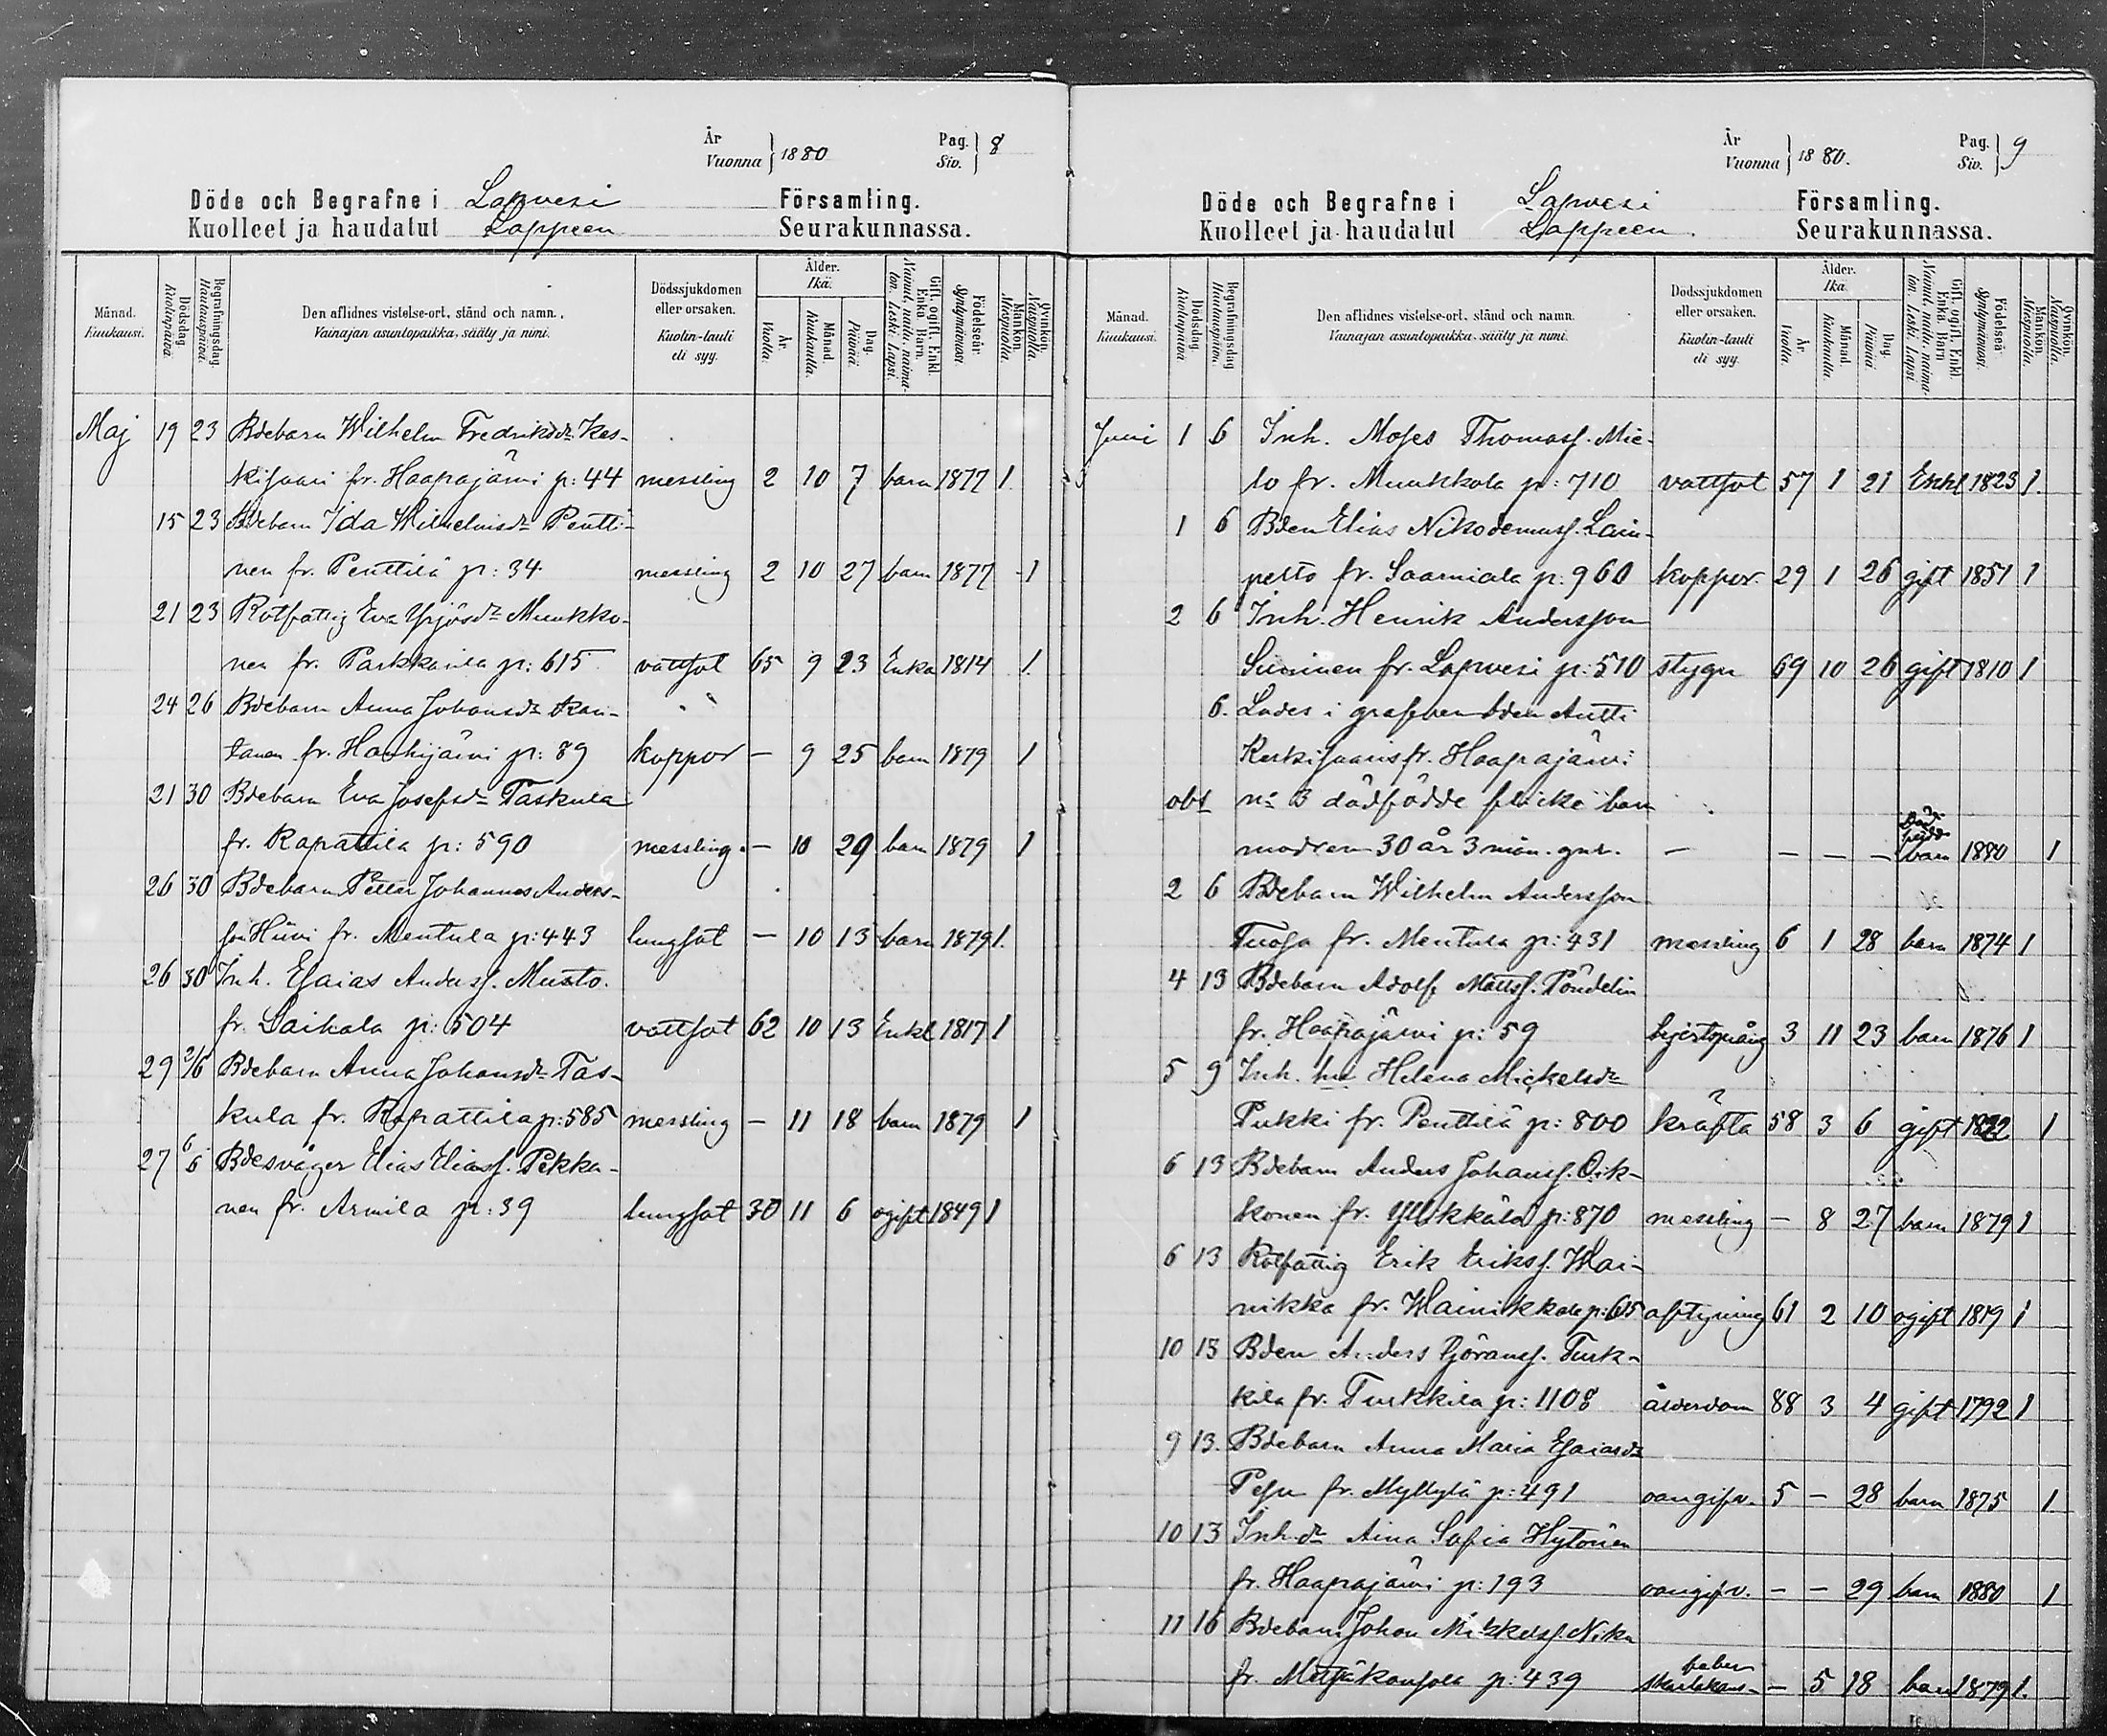 År
Vuonna } 1880
Pag.
Siv. } 8
Döde och Begrafne i Lapvesi Församling.
Kuolleet ja haudatut Lappeen Seurakunnassa.
Månad. Kuukausi.
Dödsdag. Kuolinpäivä.
Begrafningsdag. Hautauspäivä.
Den aflidnes vistelse-ort, stånd och namn.
Vainajan asuntopaikka, sääty ja nimi.
Dödssjukdomen eller orsaken.
Kuolin-tauti eli syy.
Ålder. Ikä.
År. Vuotta.
Månad. Kuukautta.
Dag. Päivää.
Gift, ogift, Enkl. Enka, Barn.
Nainut, naitu, naimaton, Leski, Lapsi.
Födelseår. Syntymävuosi.
Mankön. Miespuolta.
Qvinkön. Naispuolta.
Maj 19 23 Bdebarn Wilhelm Fredriksdr Kes-
kisaari fr. Haapajärvi p: 44 messling 2 10 7 barn 1877 1.
15 23 Bdebarn Ida Wilhelmsdr Pentti-
nen fr. Penttilä p: 34 messling 2 10 27 barn 1877 1
21 23 Rotfattig Eva Yrjösdr Munkko-
nen fr. Parkkarila p: 615 vattsot 65 9 23 Enka 1814 1.
24 26 Bdebarn Anna Johansdr Ran-
tanen fr. Hanhijärvi p: 89 koppor — 9 25 barn 1879 1
21 30 Bdebarn Eva Josefsdr Taskula
fr. Rapattila p: 590 messling. — 10 29 barn 1879 1
26 30 Bdebarn Petter Johannes Anders-
son Hüvi fr. Mentula p: 443 lungsot — 10 13 barn 1879 1.
26 30 Inh. Esaias Anderss. Musto.
fr. Laihala p: 504 vattsot 62 10 13 Enkl 1817 1
29 2/6 Bdebarn Anna Johansdr Tas-
kula fr. Rapattila p: 585 messling — 11 18 barn 1879 1
27 6/6 Bdesvåger Elias Eliass. Pekka-
nen fr. Armila p: 39 lungsot 30 11 6 ogift 1849 1
År
Vuonna } 1880.
Pag.
Siv. } 9
Döde och Begrafne i Lapvesi Församling.
Kuolleet ja haudatut Lappeen. Seurakunnassa.
Månad. Kuukausi.
Dödsdag. Kuolinpäivä.
Begrafningsdag. Hautauspäivä.
Den aflidnes vistelse-ort, stånd och namn.
Vainajan asuntopaikka, sääty ja nimi.
Dödssjukdomen eller orsaken.
Kuolin-tauti eli syy.
Ålder. Ikä.
År. Vuotta.
Månad. Kuukautta.
Dag. Päivää.
Gift, ogift, Enkl. Enka, Barn.
Nainut, naitu, naimaton, Leski, Lapsi.
Födelseår. Syntymävuosi.
Mankön. Miespuolta.
Qvinkön. Naispuolta.
Juni 1 6 Inh. Moses Thomass. Mie-
to fr. Munkkola p: 710 vattsot 57 1 21 Enkl 1823 1.
1 6 Bden Elias Nikodemuss. Lam-
pelto fr. Saarniala p: 960 koppor. 29 1 26 gift 1851 1
2 6 Inh. Henrik Andersson
Suninen fr. Lapvesi p: 510 stygn 69 10 26 gift 1810 1
6. Lades i grafven bden Antti
Keskisaaris fr. Haapajärvi
obs n: 3 dödfödde flicke barn
modren 30 år 3 mån. gul. — — — — Dödfödd barn 1880 1
2 6 Bdebarn Wilhelm Andersson
Tuosa fr. Mentula p: 431 messling 6 1 28 barn 1874 1
4 13 Bdebarn Adolf Mattss. Pöndelin
fr. Haapajärvi p: 59 hjertsprång 3 11 23 barn 1876 1
5 9 Inh. Helena Mickelsdr
Pukki fr. Penttilä p: 800 kräfta 58 3 6 gift 1822 1
6 13 Bdebarn Anders Johanss. Oik-
konen fr. Yllikkälä p: 870 messling — 8 27 barn 1879 1
6 13 Rotfattig Erik Erikss. Wai-
nikka fr. Wainikkala p: 615 aftyning 61 2 10 ogift 1819 1
10 13 Bden Anders Göranss. Turk-
kila fr. Turkkila p: 1108 ålderdom 88 3 4 gift 1792 1
9 13. Bdebarn Anna Maria Esaiasdr
Pesu fr. Myllylä p: 491 oangifv. 5 — 28 barn 1875 1
10 13 Inh dr Aina Sofia Hytönen
fr. Haapajärvi p: 193 oangifv. — — 29 barn 1880 1
11 16 Bdebarn Johan Mikkelss. Niku
fr. p: 439 skarlakans- feber — 5 18 barn 1879 1.